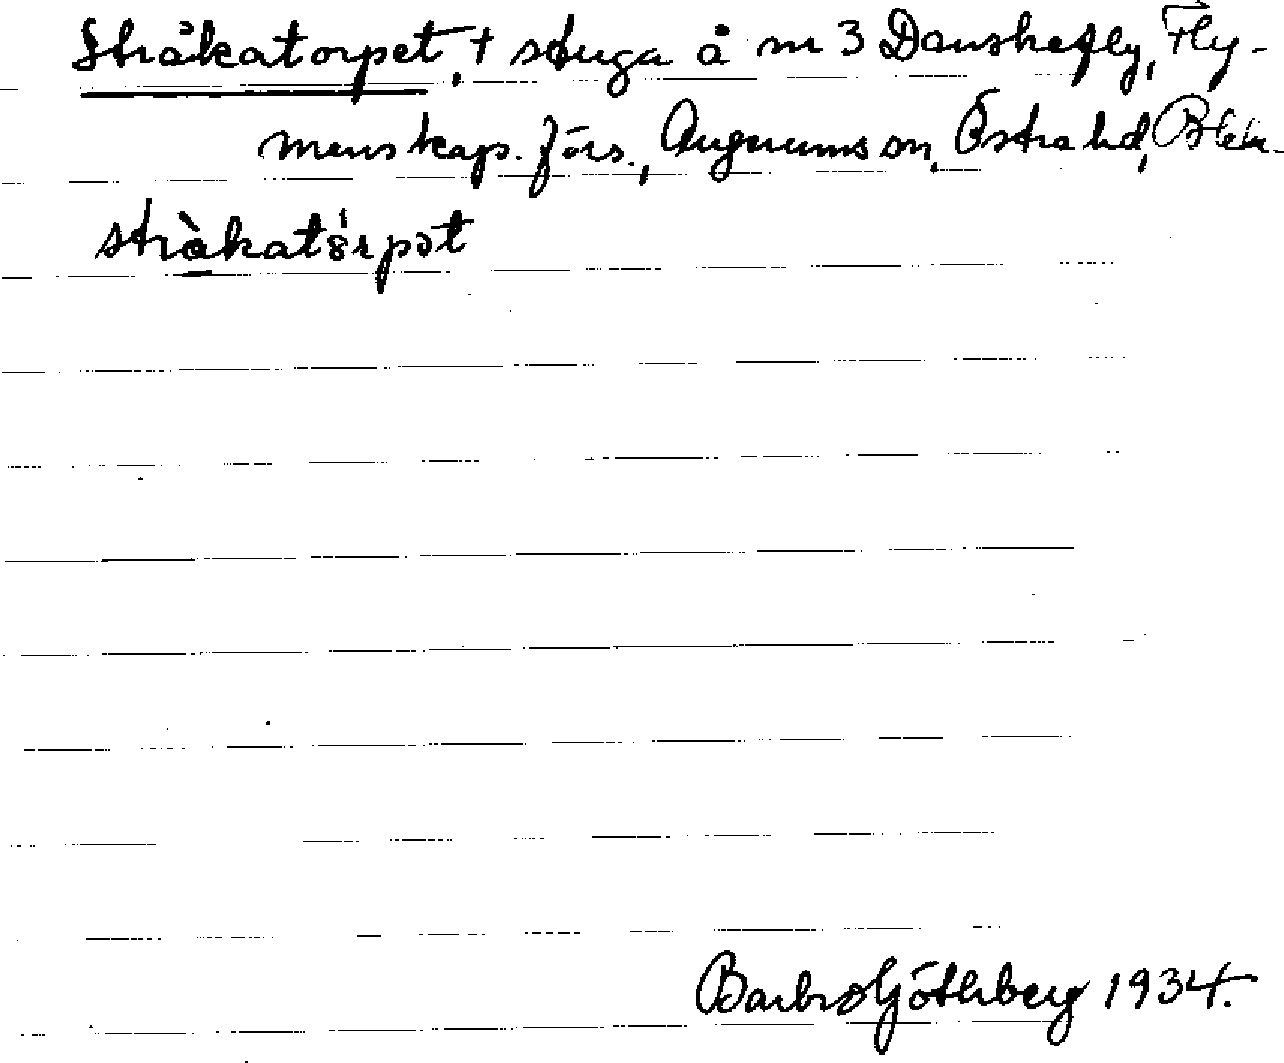 Stråkatorpet, † stuga å nr 3 Danskefly, Fly-
menskap. förs., Augerums sn, Östra hd, Blek.
stràkatórpət
Barbro Göthberg 1934.